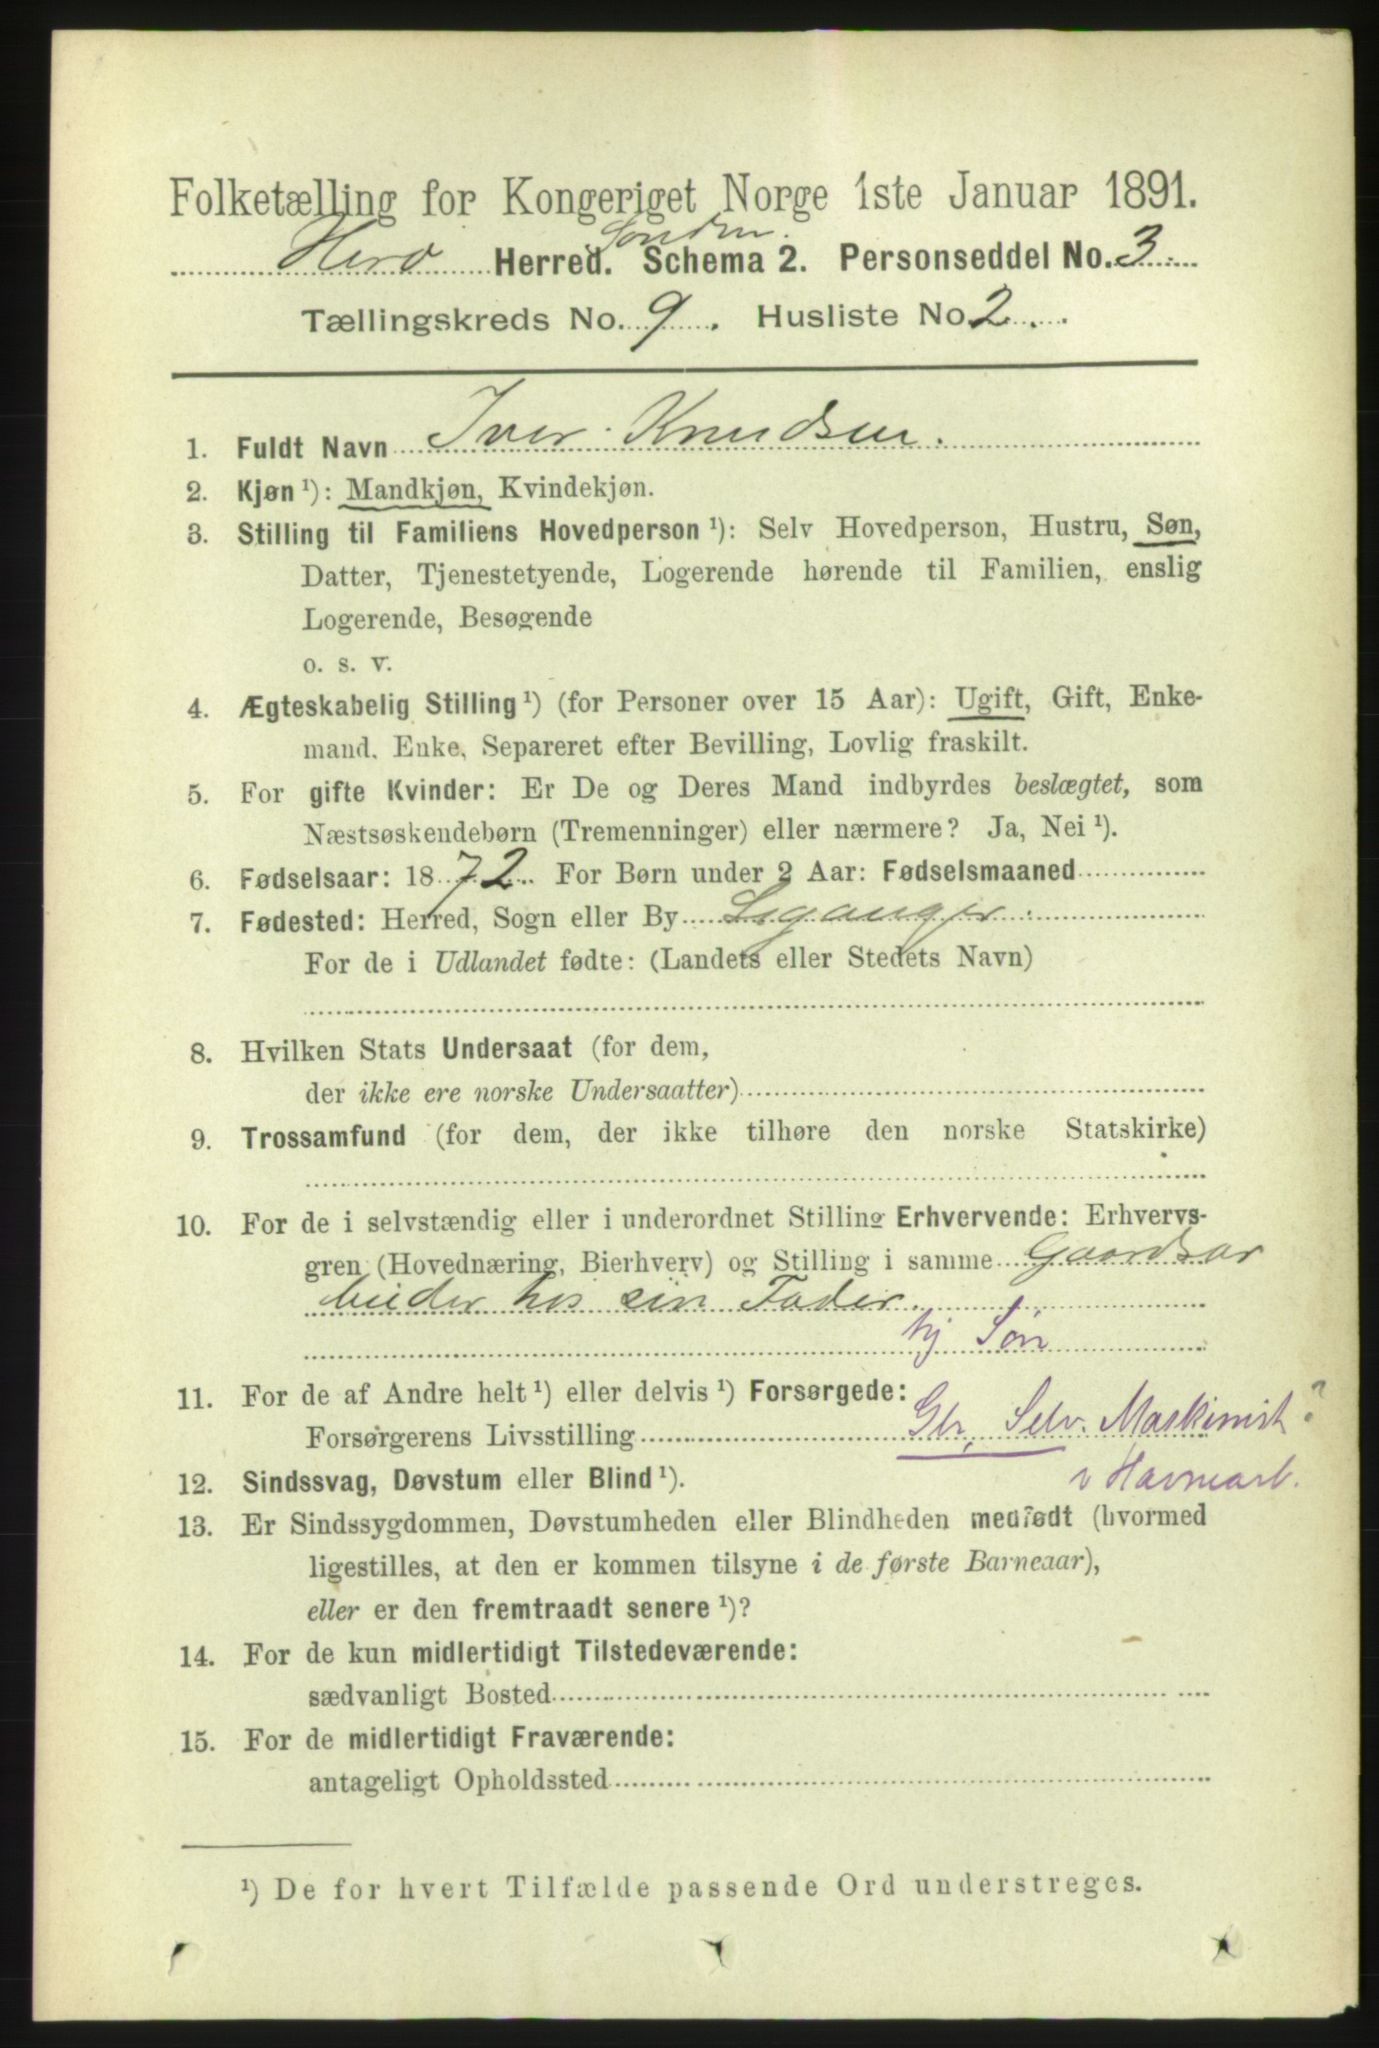 Folketælling for Kongeriget Norge 1ste Januar 1891.
Søndre.
Herø Herred. Schema 2. Personseddel No. 3.
Tællingskreds No. 9. Husliste No. 2.
1. Fuldt Navn Iver Knudsen.
2. Kjøn ¹): Mandkjøn, Kvindekjøn.
3. Stilling til Familiens Hovedperson ¹): Selv Hovedperson, Hustru, Søn,
Datter, Tjenestetyende, Logerende hørende til Familien, enslig
Logerende, Besøgende
o. s. v.
4. Ægteskabelig Stilling ¹) (for Personer over 15 Aar): Ugift, Gift, Enke-
mand, Enke, Separeret efter Bevilling, Lovlig fraskilt.
5. For gifte Kvinder: Er De og Deres Mand indbyrdes beslægtet, som
Næstsøskendebørn (Tremenninger) eller nærmere? Ja, Nei ¹).
6. Fødselsaar: 1872. For Børn under 2 Aar: Fødselsmaaned
7. Fødested: Herred, Sogn eller By Leganger.
For de i Udlandet fødte: (Landets eller Stedets Navn)
8. Hvilken Stats Undersaat (for dem,
der ikke ere norske Undersaatter)
9. Trossamfund (for dem, der ikke tilhøre den norske Statskirke)
10. For de i selvstændig eller i underordnet Stilling Erhvervende: Erhvervs-
gren (Hovednæring, Bierhverv) og Stilling i samme Gaardsar
beider hos sin Fader.
hj Søn
11. For de af Andre helt ¹) eller delvis ¹) Forsørgede:
Forsørgerens Livsstilling Gbr, Selv. Maskinist?
i Havnearb.
12. Sindssvag, Døvstum eller Blind ¹).
13. Er Sindssygdommen, Døvstumheden eller Blindheden medfødt (hvormed
ligestilles, at den er kommen tilsyne i de første Barneaar),
eller er den fremtraadt senere ¹)?
14. For de kun midlertidigt Tilstedeværende:
sædvanligt Bosted
15. For de midlertidigt Fraværende:
antageligt Opholdssted
¹) De for hvert Tilfælde passende Ord understreges.